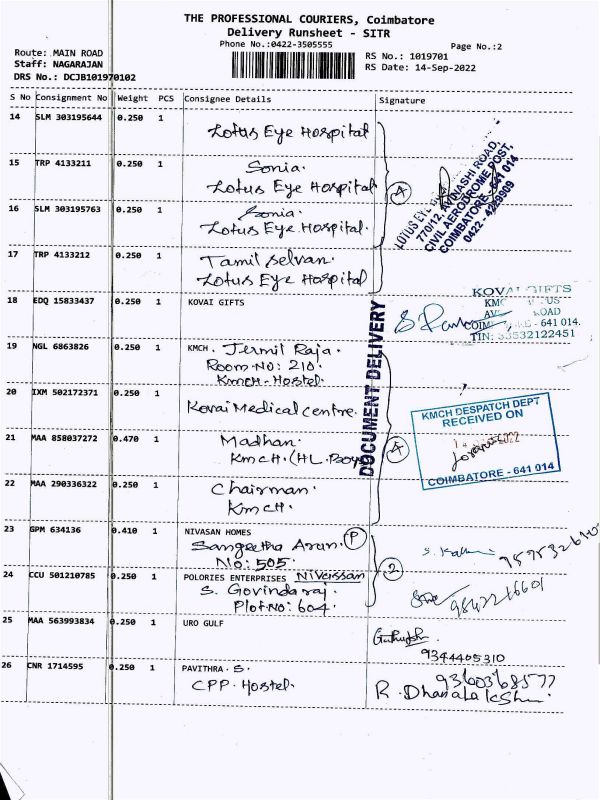 THE PROFESSIONAL COURIERS, Coimbatore
Delivery Runsheet - SITR
Phone No.:0422-3505555
Page No.:2
Route: MAIN ROAD
Staff: NAGARAJAN
DRS No.: DCJB101970102
RS No.: 1019701
RS Date: 14-Sep-2022
S No Consignment No Weight PCS Consignee Details Signature
14 SLM 303195644 0.250 1
Lotus Eye Hospital
15 TRP 4133211 0.250 1 Sonia.
Lotus Eye Hospital
16 SLM 303195763 0.250 1 Sonia.
Lotus Eye Hospital.
4
LOTUS EYE
770/12, AVINASHI ROAD,
CIVIL AERODROME POST,
COIMBATORE - 641 014
0422 - 4289909
17 TRP 4133212 0.250 1 Tamil selvan.
Lotus Eye Hospital
18 EDQ 15833437 0.250 1 KOVAI GIFTS
KOVAI GIFTS
ROAD
- 641 014.
TIN: 33532122451
DOCUMENT DELIVERY
19 NGL 6863826 0.250 1 KMCH. Jermil Raja.
Room-No: 210.
KMCH-Hostel.
20 IXM 502172371 0.250 1
Kovai Medical Centre.
21 MAA 858037272 0.470 1 Madhan.
KMCH. (HL.
4
KMCH DESPATCH DEPT
RECEIVED ON
2022
COIMBATORE - 641 014
22 MAA 290336322 0.250 1 Chairman.
KMCH.
23 GPM 634136 0.410 1 NIVASAN HOMES
Sangeetha Arun. P
No: 505.
24 CCU 501210785 0.250 1 POLORIES ENTERPRISES
S. Govindaraj.
Plot No: 604.
2
25 MAA 563993834 0.250 1 URO GULF
9344405310
26 CNR 1714595 0.250 1 PAVITHRA. S.
CPP. Hostel.
9360368577
R. Dhanalakshmi